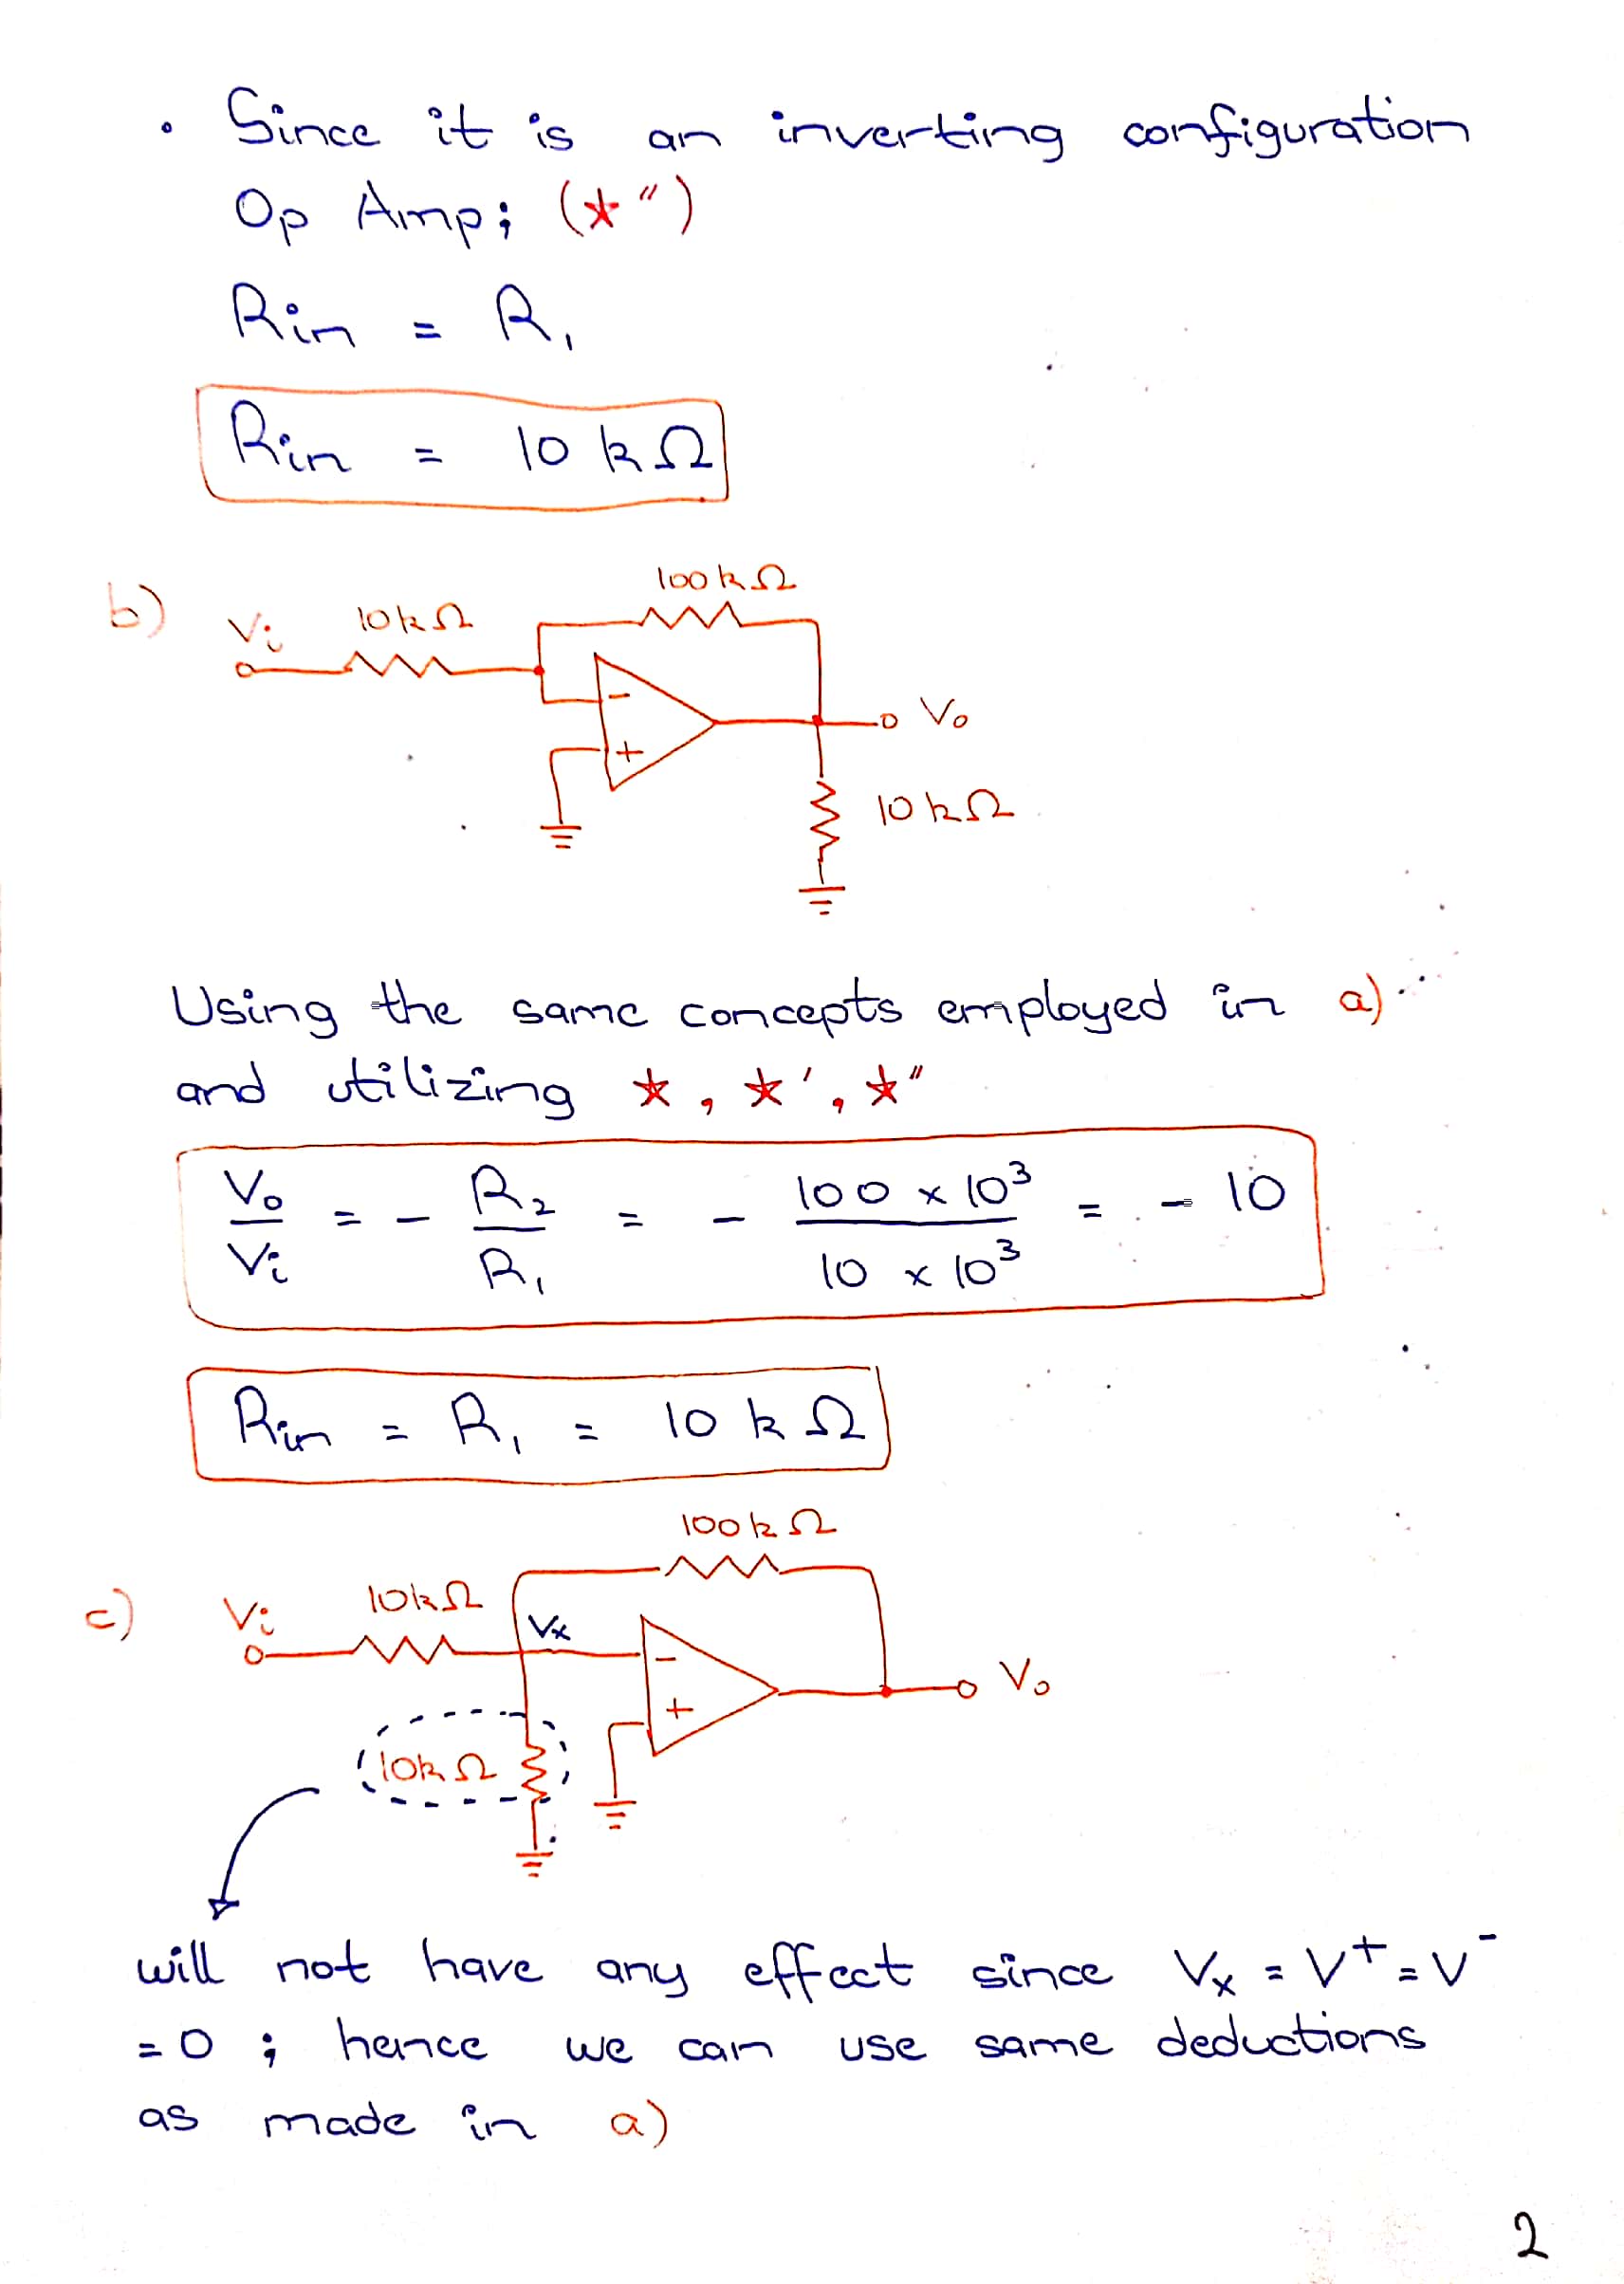 • Since it is an inverting configuration
Op Amp; (★")
Rin = R₁
Rin = 10 kΩ
b)
100kΩ
Vi 10kΩ
-
Vo
+
10kΩ
Using the same concepts employed in a)
and utilizing ★, ★', ★"
Vo/Vi = - R₂/R₁ = - 100 x 10³ / 10 x 10³ = - 10
Rin = R₁ = 10 kΩ
100kΩ
c) Vi 10kΩ
Vx
-
Vo
+
10kΩ
will not have any effect since Vx = V⁺ = V⁻
= 0 ; hence we can use same deductions
as made in a)
2